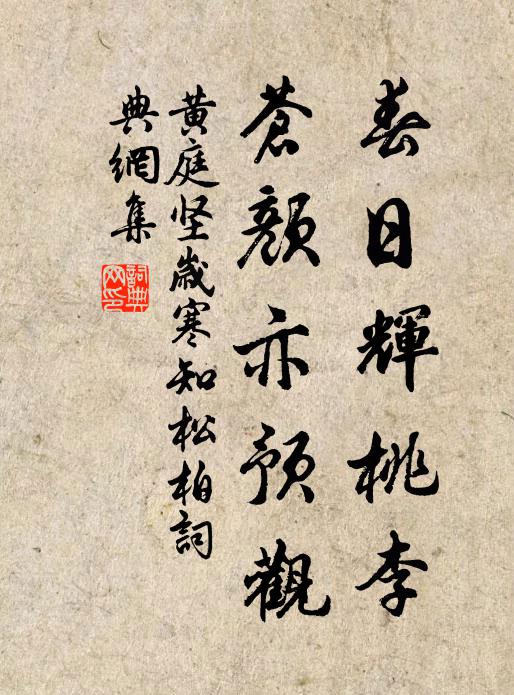 春日輝桃李
蒼顏亦預觀
黃庭坚歲寒知松柏詞
典網集
詞典網印